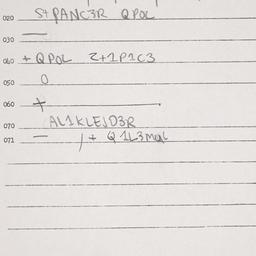 020 S4PANC3R QPOL
030 —
040 + QPOL Z+1P1C3
050 O
060 +
070 AL1KLEJD3R
071 — / + Q1L3mal